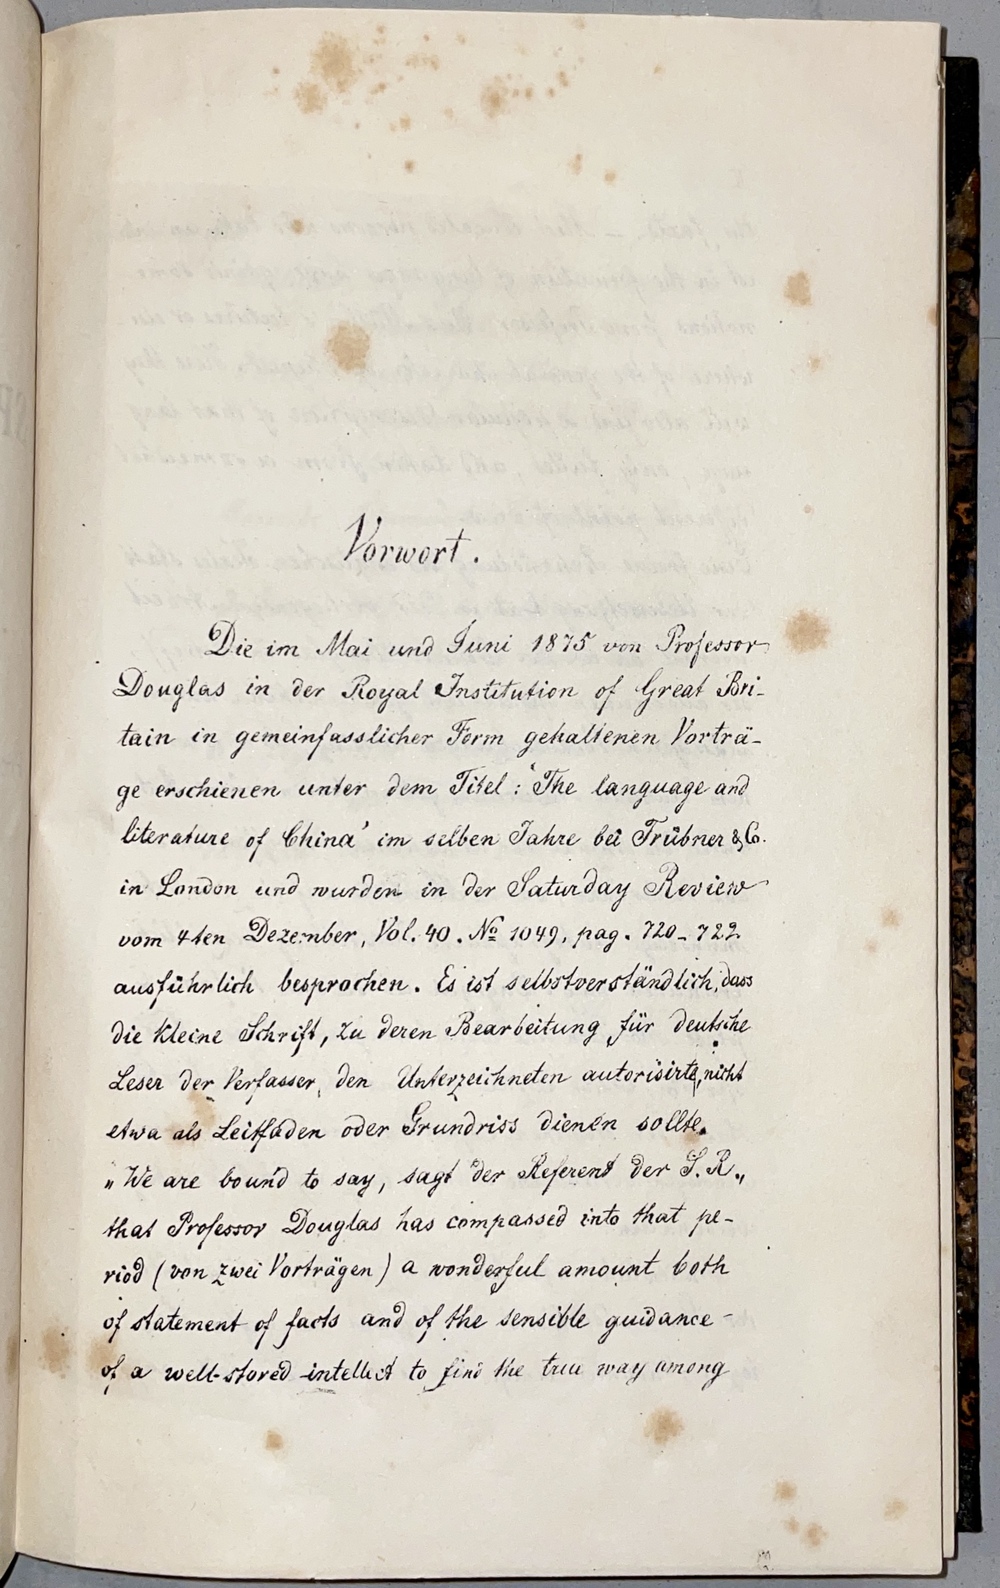 Vorwort.
Die im Mai und Juni 1875 von Professor
Douglas in der Royal Institution of Great Bri-
tain in gemeinfasslicher Form gehaltenen Vorträ-
ge erschienen unter dem Titel: 'The language and
literature of China' im selben Jahre bei Trübner & Co.
in London und wurden in der Saturday Review
vom 4ten Dezember, Vol. 40. No 1049, pag. 720-722
ausführlich besprochen. Es ist selbstverständlich, dass
die kleine Schrift, zu deren Bearbeitung für deutsche
Leser der Verfasser den Unterzeichneten autorisirte, nicht
etwa als Leitfaden oder Grundriss dienen sollte.
„We are bound to say, sagt der Referent der S. R.,
that Professor Douglas has compassed into that pe-
riod (von zwei Vorträgen) a wonderful amount both
of statement of facts and of the sensible guidance
of a well-stored intellect to find the true way among